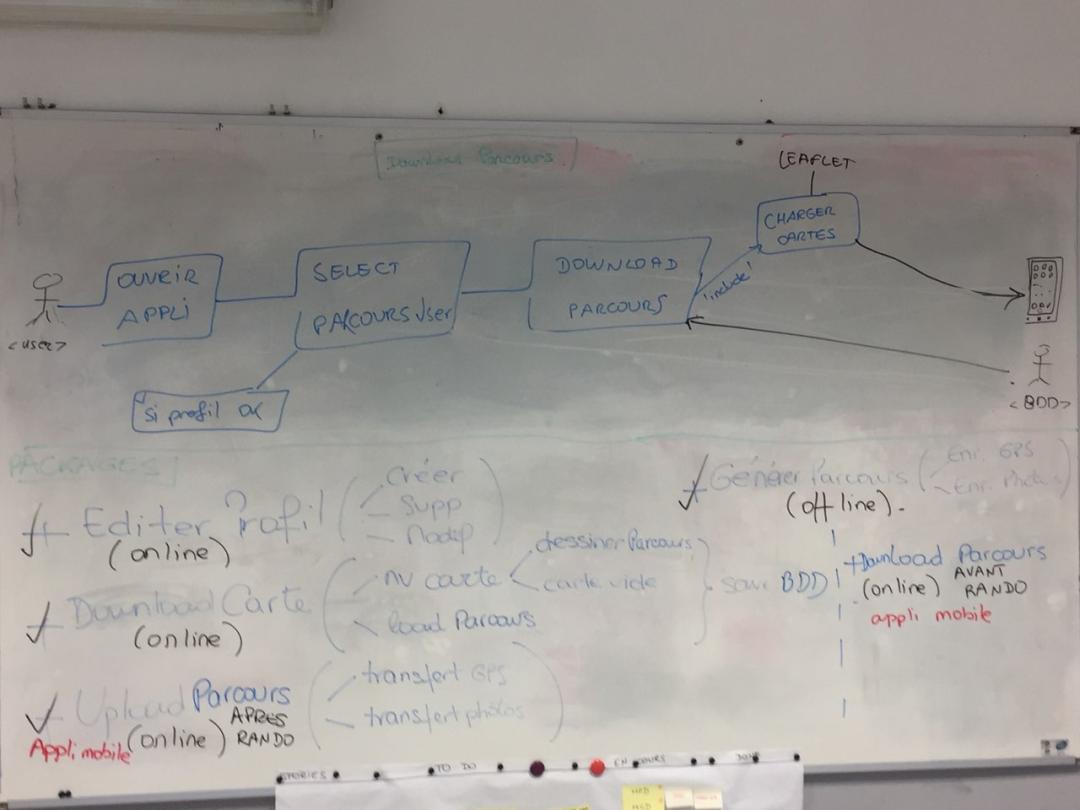 Download Parcours
LEAFLET
CHARGER
CARTES
OUVRIR
APPLI
SELECT
PARCOURS User
DOWNLOAD
PARCOURS
"include"
<USER>
<BDD>
Si profil OK
PACKAGES
+ Editer Profil
(online)
Créer
Supp
Modif
+ Download Carte
(online)
nv carte
dessiner Parcours
carte vide
load Parcours
save BDD
+ Upload Parcours
(online)
APRES
RANDO
Appli mobile
transfert GPS
transfert photos
+ Générer Parcours
(off line).
Enr. GPS
Enr. Photos
+ Download Parcours
(online)
AVANT
RANDO
appli mobile
STORIES
TO DO
EN COURS
DONE